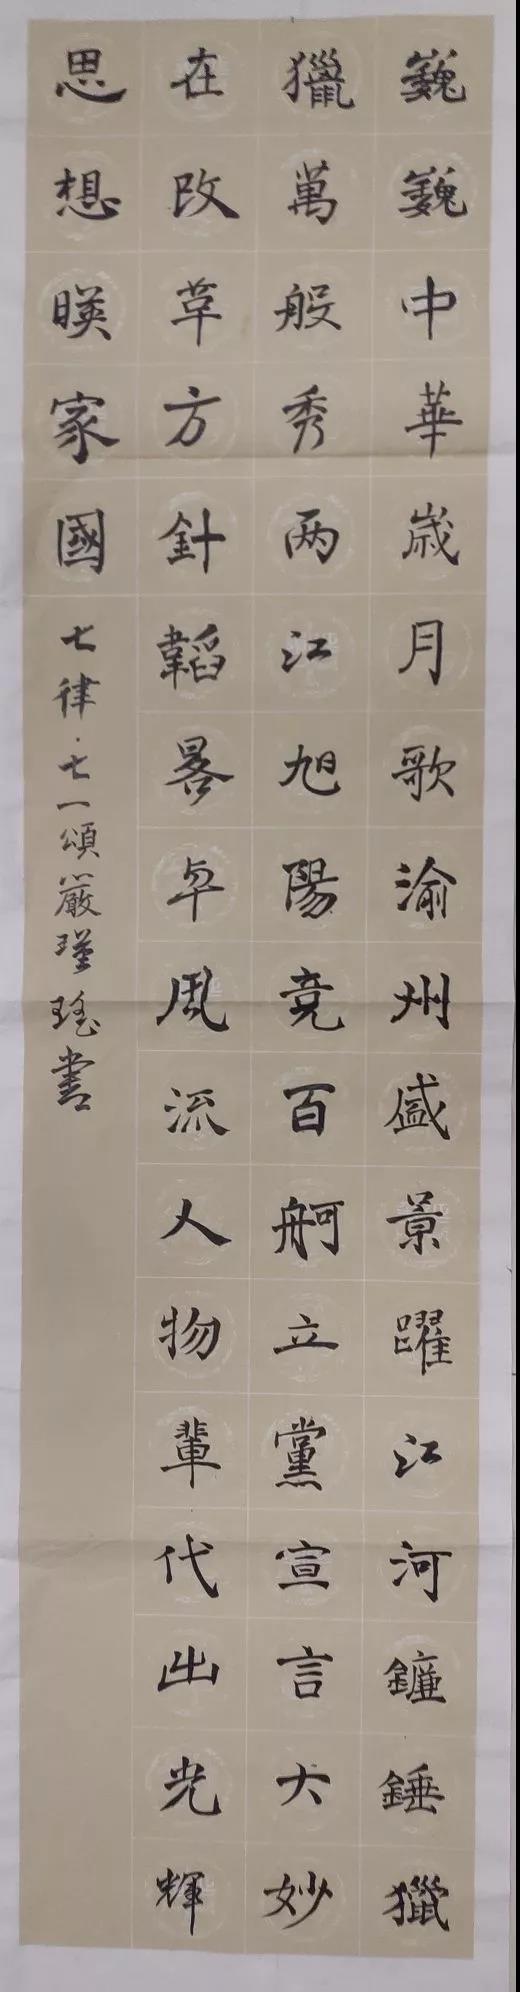 巍巍中華歲月歌渝州盛景躍江河鐮錘獵
獵萬般秀两江旭陽竞百舸立黨宣言大妙
在改草方針韜畧卓風流人物輩代出光輝
思想暎家國
七律·七一頌嚴瑾瑤書